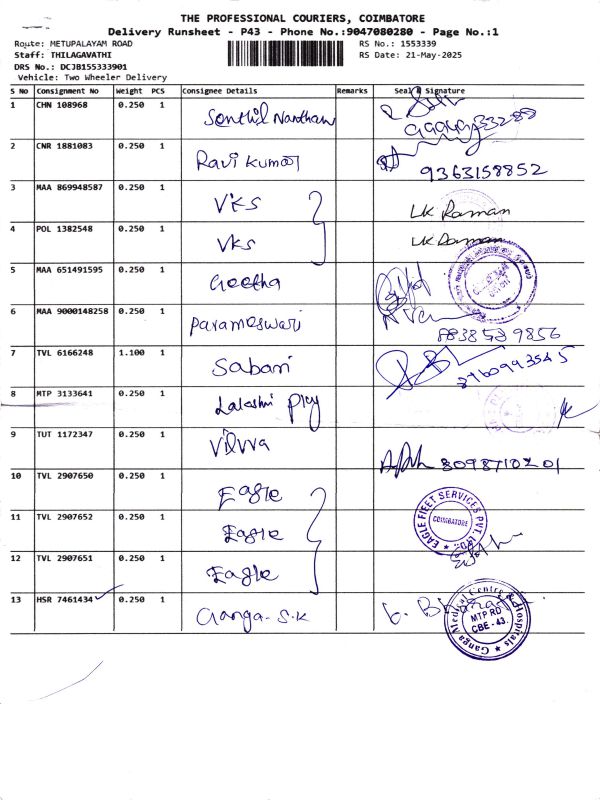 THE PROFESSIONAL COURIERS, COIMBATORE
Delivery Runsheet - P43 - Phone No.:9047080280 - Page No.:1
Route: METUPALAYAM ROAD RS No.: 1553339
Staff: THILAGAVATHI RS Date: 21-May-2025
DRS No.: DCJB155333901
Vehicle: Two Wheeler Delivery
S No Consignment No Weight PCS Consignee Details Remarks Seal & Signature
1 CHN 108968 0.250 1 Senthil
2 CNR 1881083 0.250 1 Ravi kumar 9363158852
3 MAA 869948587 0.250 1 VKS LK Raman
4 POL 1382548 0.250 1 VKS LK Raman
5 MAA 651491595 0.250 1 Geetha
6 MAA 9000148258 0.250 1 Parameswari
7 TVL 6166248 1.100 1 Sabari
8 MTP 3133641 0.250 1 Lakshmi Ply
9 TUT 1172347 0.250 1 Vilvva 8098710201
10 TVL 2907650 0.250 1 Eagle
11 TVL 2907652 0.250 1 Eagle EAGLE FLEET SERVICES PVT. LTD. COIMBATORE
12 TVL 2907651 0.250 1 Eagle
13 HSR 7461434 0.250 1 Ganga-S.K
Ganga Medical Centre & Hospitals MTP RD CBE - 43.